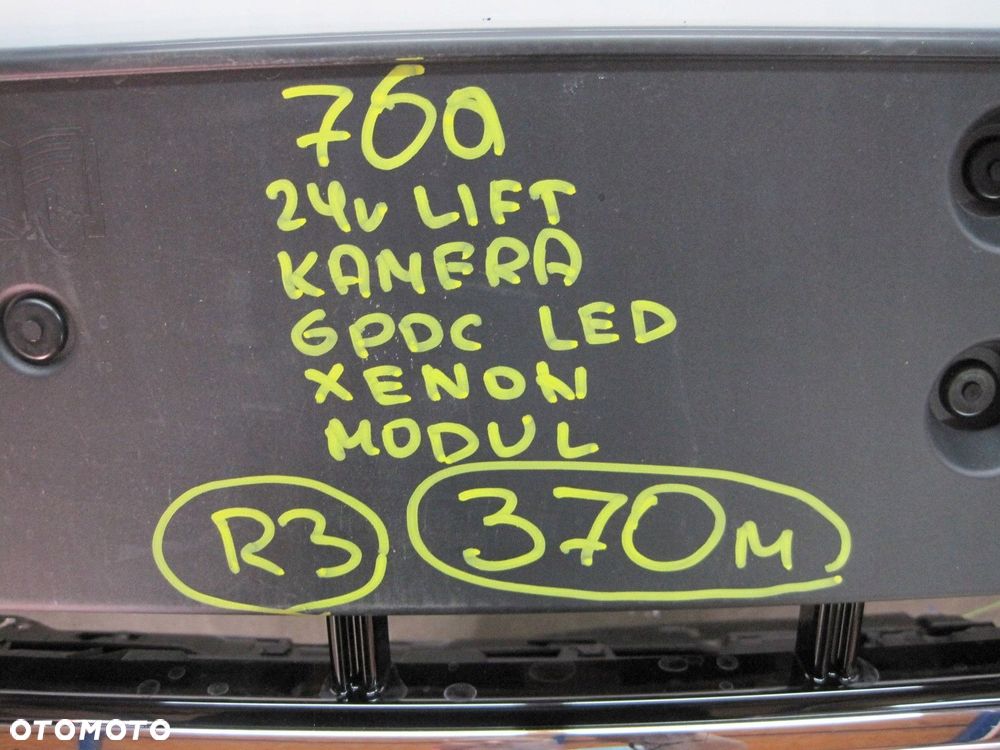 76a
24v LIFT
KAMERA
6PDC LED
XENON
MODUL
R3 370M
OTOMOTO